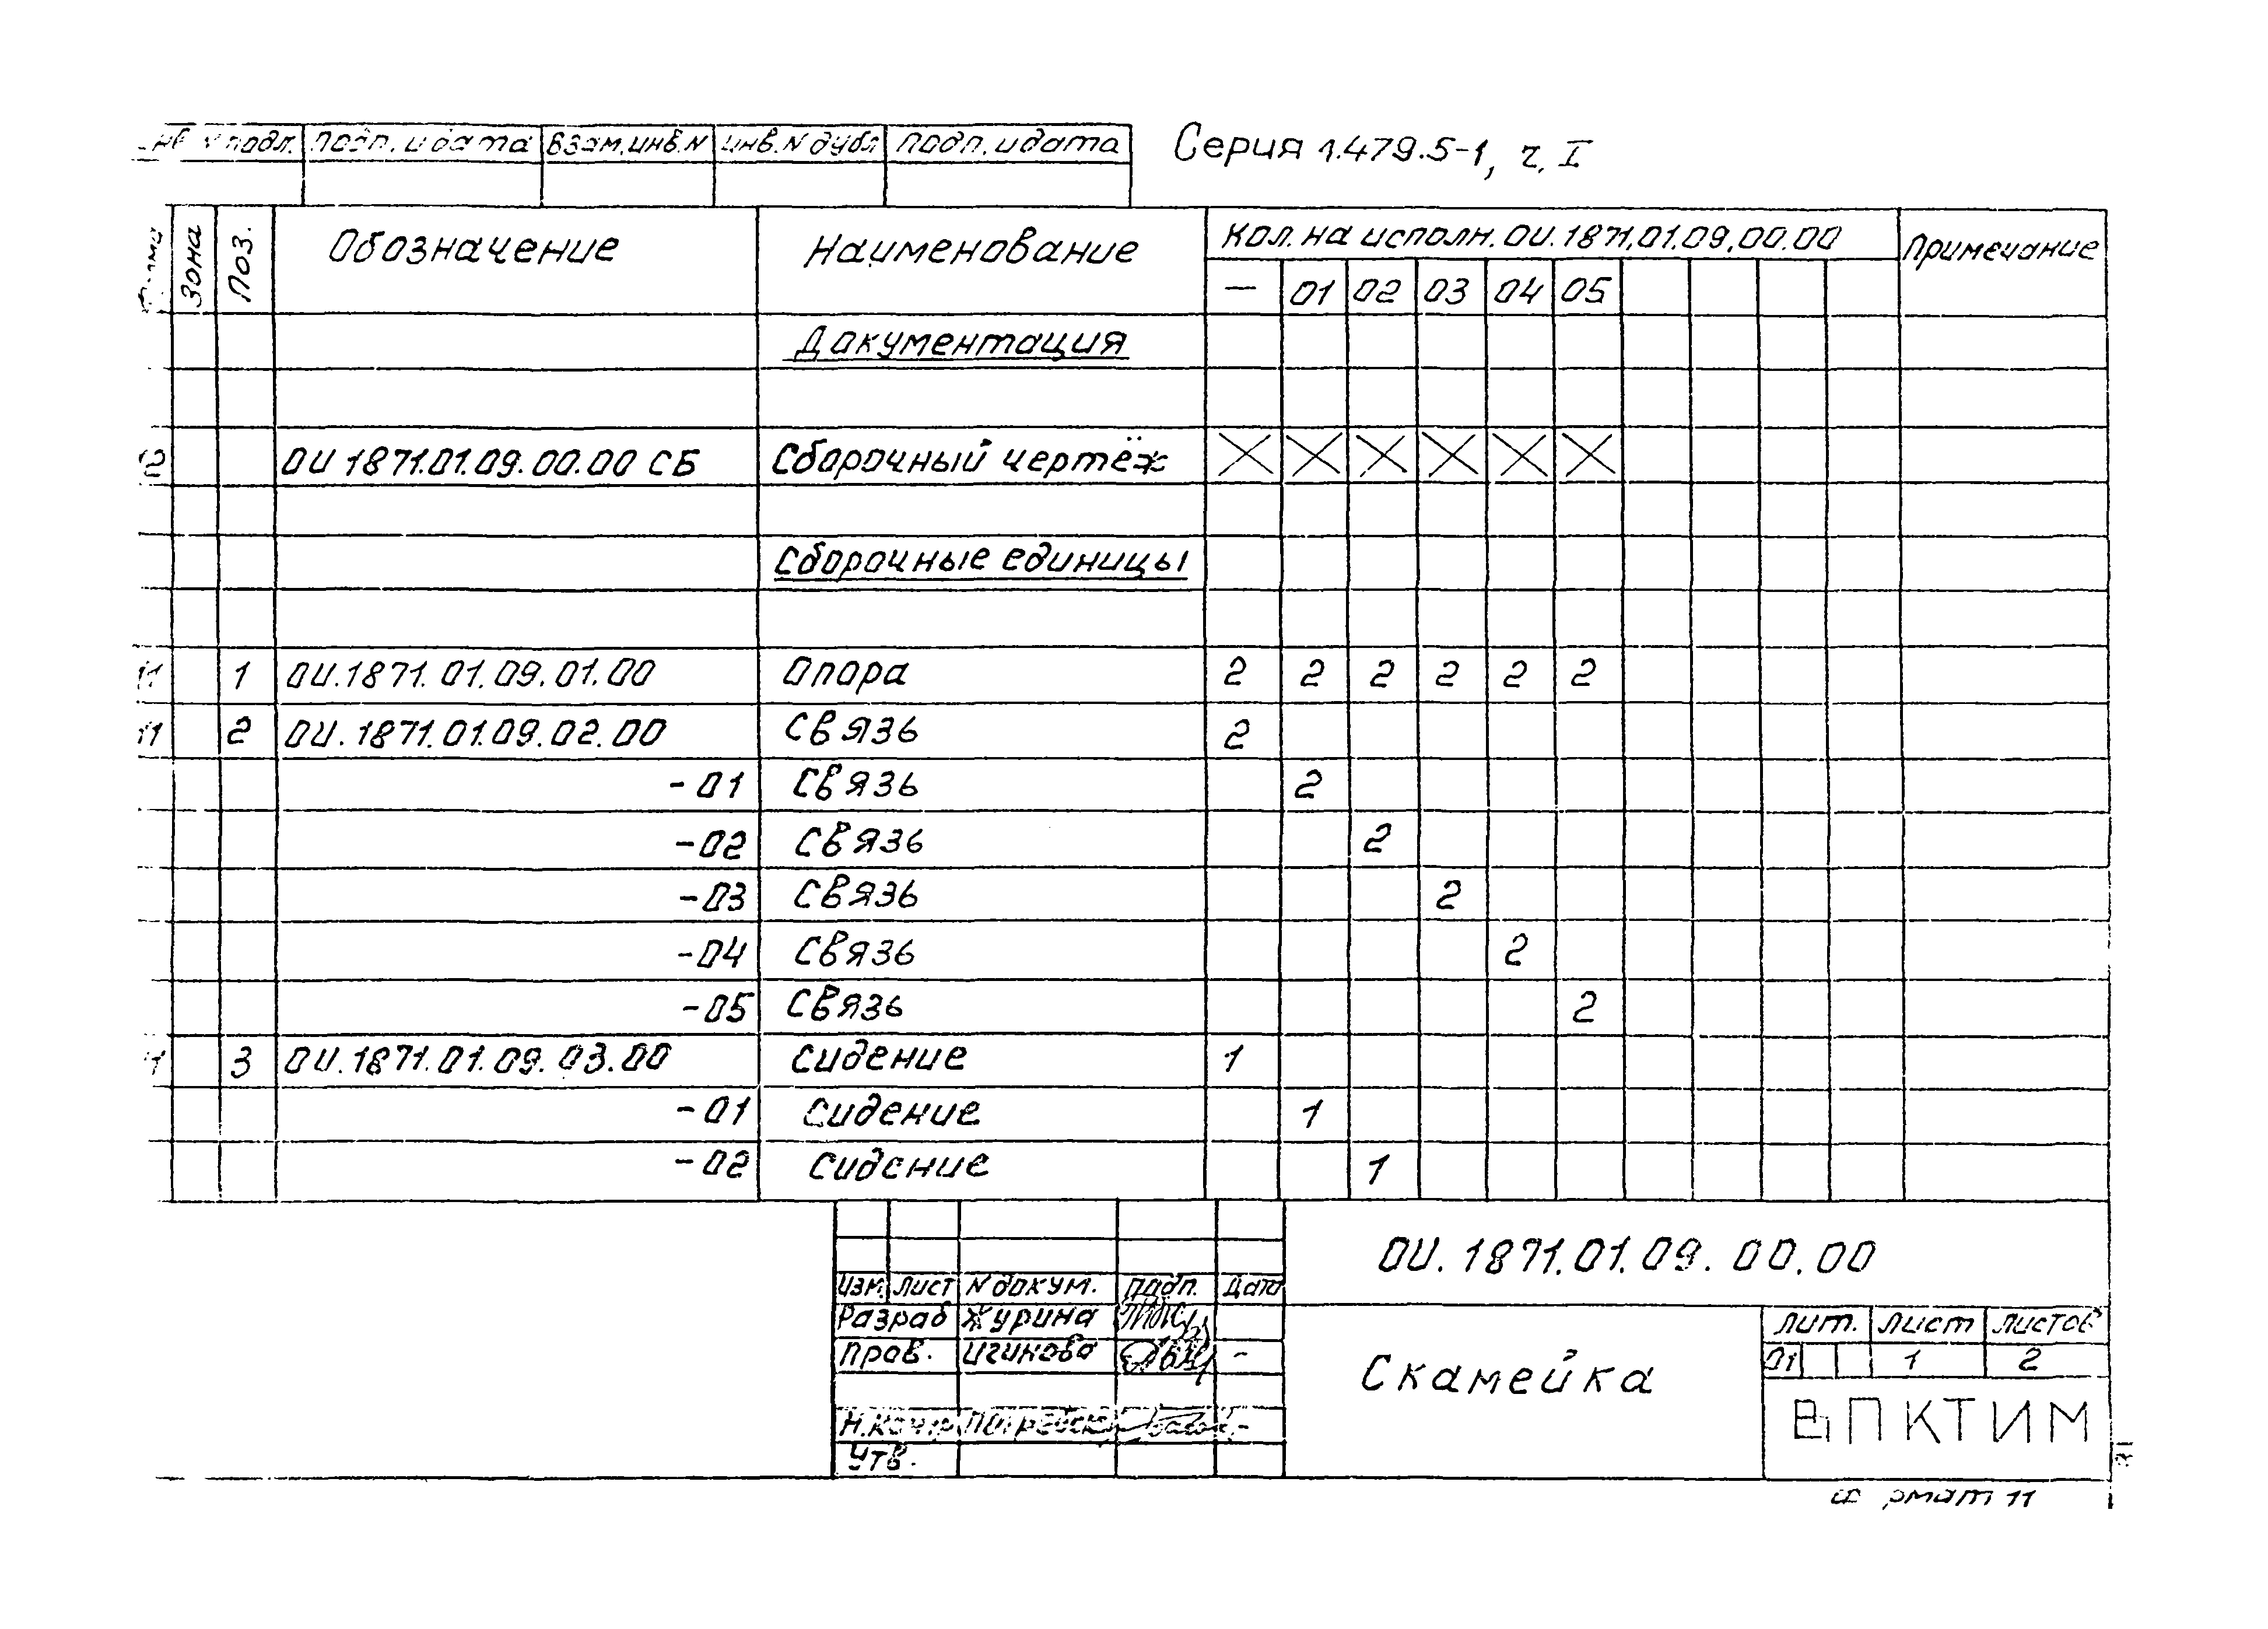 N подл. Подп. и дата Взам. инв. N Инв. N дубл Подп. и дата Серия 1.479.5-1, ч. I
Зона Поз. Обозначение Наименование Кол. на исполн. ОИ.1871.01.09.00.00 Примечание
— 01 02 03 04 05
Документация
12 ОИ 1871.01.09.00.00 СБ Сборочный чертёж X X X X X X
Сборочные единицы
11 1 ОИ.1871.01.09.01.00 Опора 2 2 2 2 2 2
11 2 ОИ.1871.01.09.02.00 Связь 2
-01 Связь 2
-02 Связь 2
-03 Связь 2
-04 Связь 2
-05 Связь 2
3 ОИ.1871.01.09.03.00 Сидение 1
-01 Сидение 1
-02 Сидение 1
ОИ.1871.01.09.00.00
Изм. Лист N докум. Подп. Дата
Разраб Журина
Пров. Игинова -
Н.контр
Утв.
Скамейка
Лит. Лист Листов
01 1 2
ВПКТИМ
Формат 11